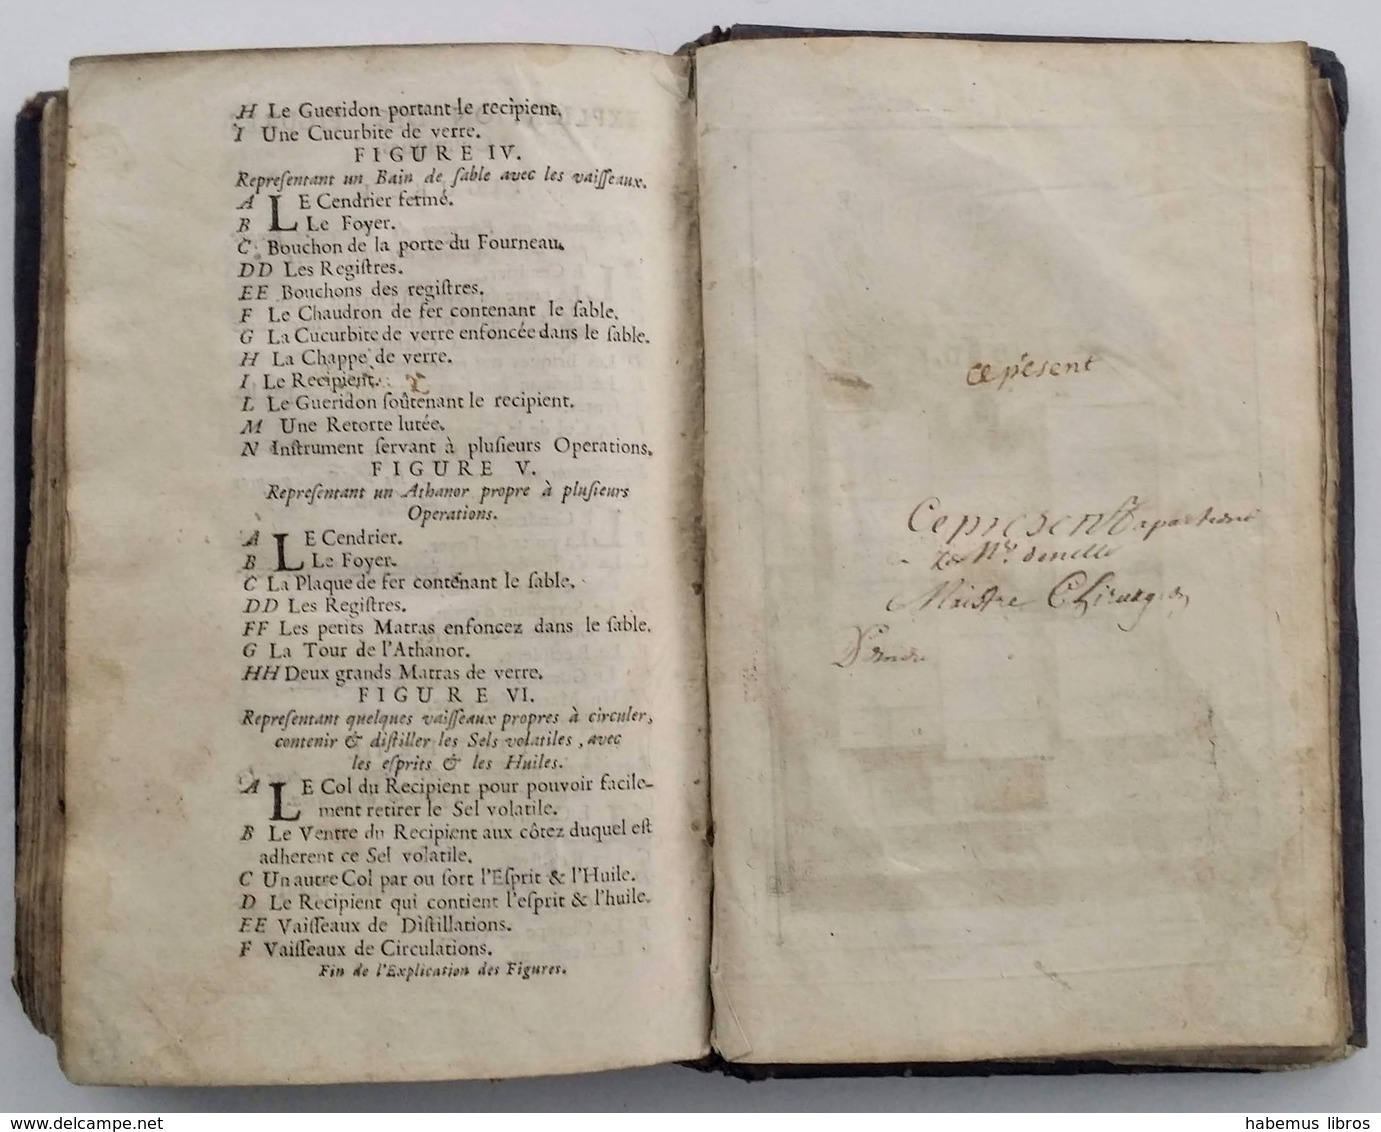 H Le Gueridon portant le recipient.
I Une Cucurbite de verre.
FIGURE IV.
Repreſentant un Bain de ſable avec les vaiſſeaux.
A LE Cendrier fermé.
B Le Foyer.
C Bouchon de la porte du Fourneau.
DD Les Regiſtres.
EE Bouchons des regiſtres.
F Le Chaudron de fer contenant le ſable.
G La Cucurbite de verre enfoncée dans le ſable.
H La Chappe de verre.
I Le Recipient.
L Le Gueridon ſoûtenant le recipient.
M Une Retorte lutée.
N Inſtrument ſervant à pluſieurs Operations.
FIGURE V.
Repreſentant un Athanor propre à pluſieurs
Operations.
A LE Cendrier.
B Le Foyer.
C La Plaque de fer contenant le ſable.
DD Les Regiſtres.
FF Les petits Matras enfoncez dans le ſable.
G La Tour de l'Athanor.
HH Deux grands Matras de verre.
FIGURE VI.
Repreſentant quelques vaiſſeaux propres à circuler,
contenir & diſtiller les Sels volatiles, avec
les eſprits & les Huiles.
A LE Col du Recipient pour pouvoir facile-
ment retirer le Sel volatile.
B Le Ventre du Recipient aux côtez duquel eſt
adherent ce Sel volatile.
C Un autre Col par ou ſort l'Eſprit & l'Huile.
D Le Recipient qui contient l'eſprit & l'huile.
EE Vaiſſeaux de Diſtillations.
F Vaiſſeaux de Circulations.
Fin de l'Explication des Figures.
ce présent
Ce present
Maistre
www.delcampe.net
habemus libros